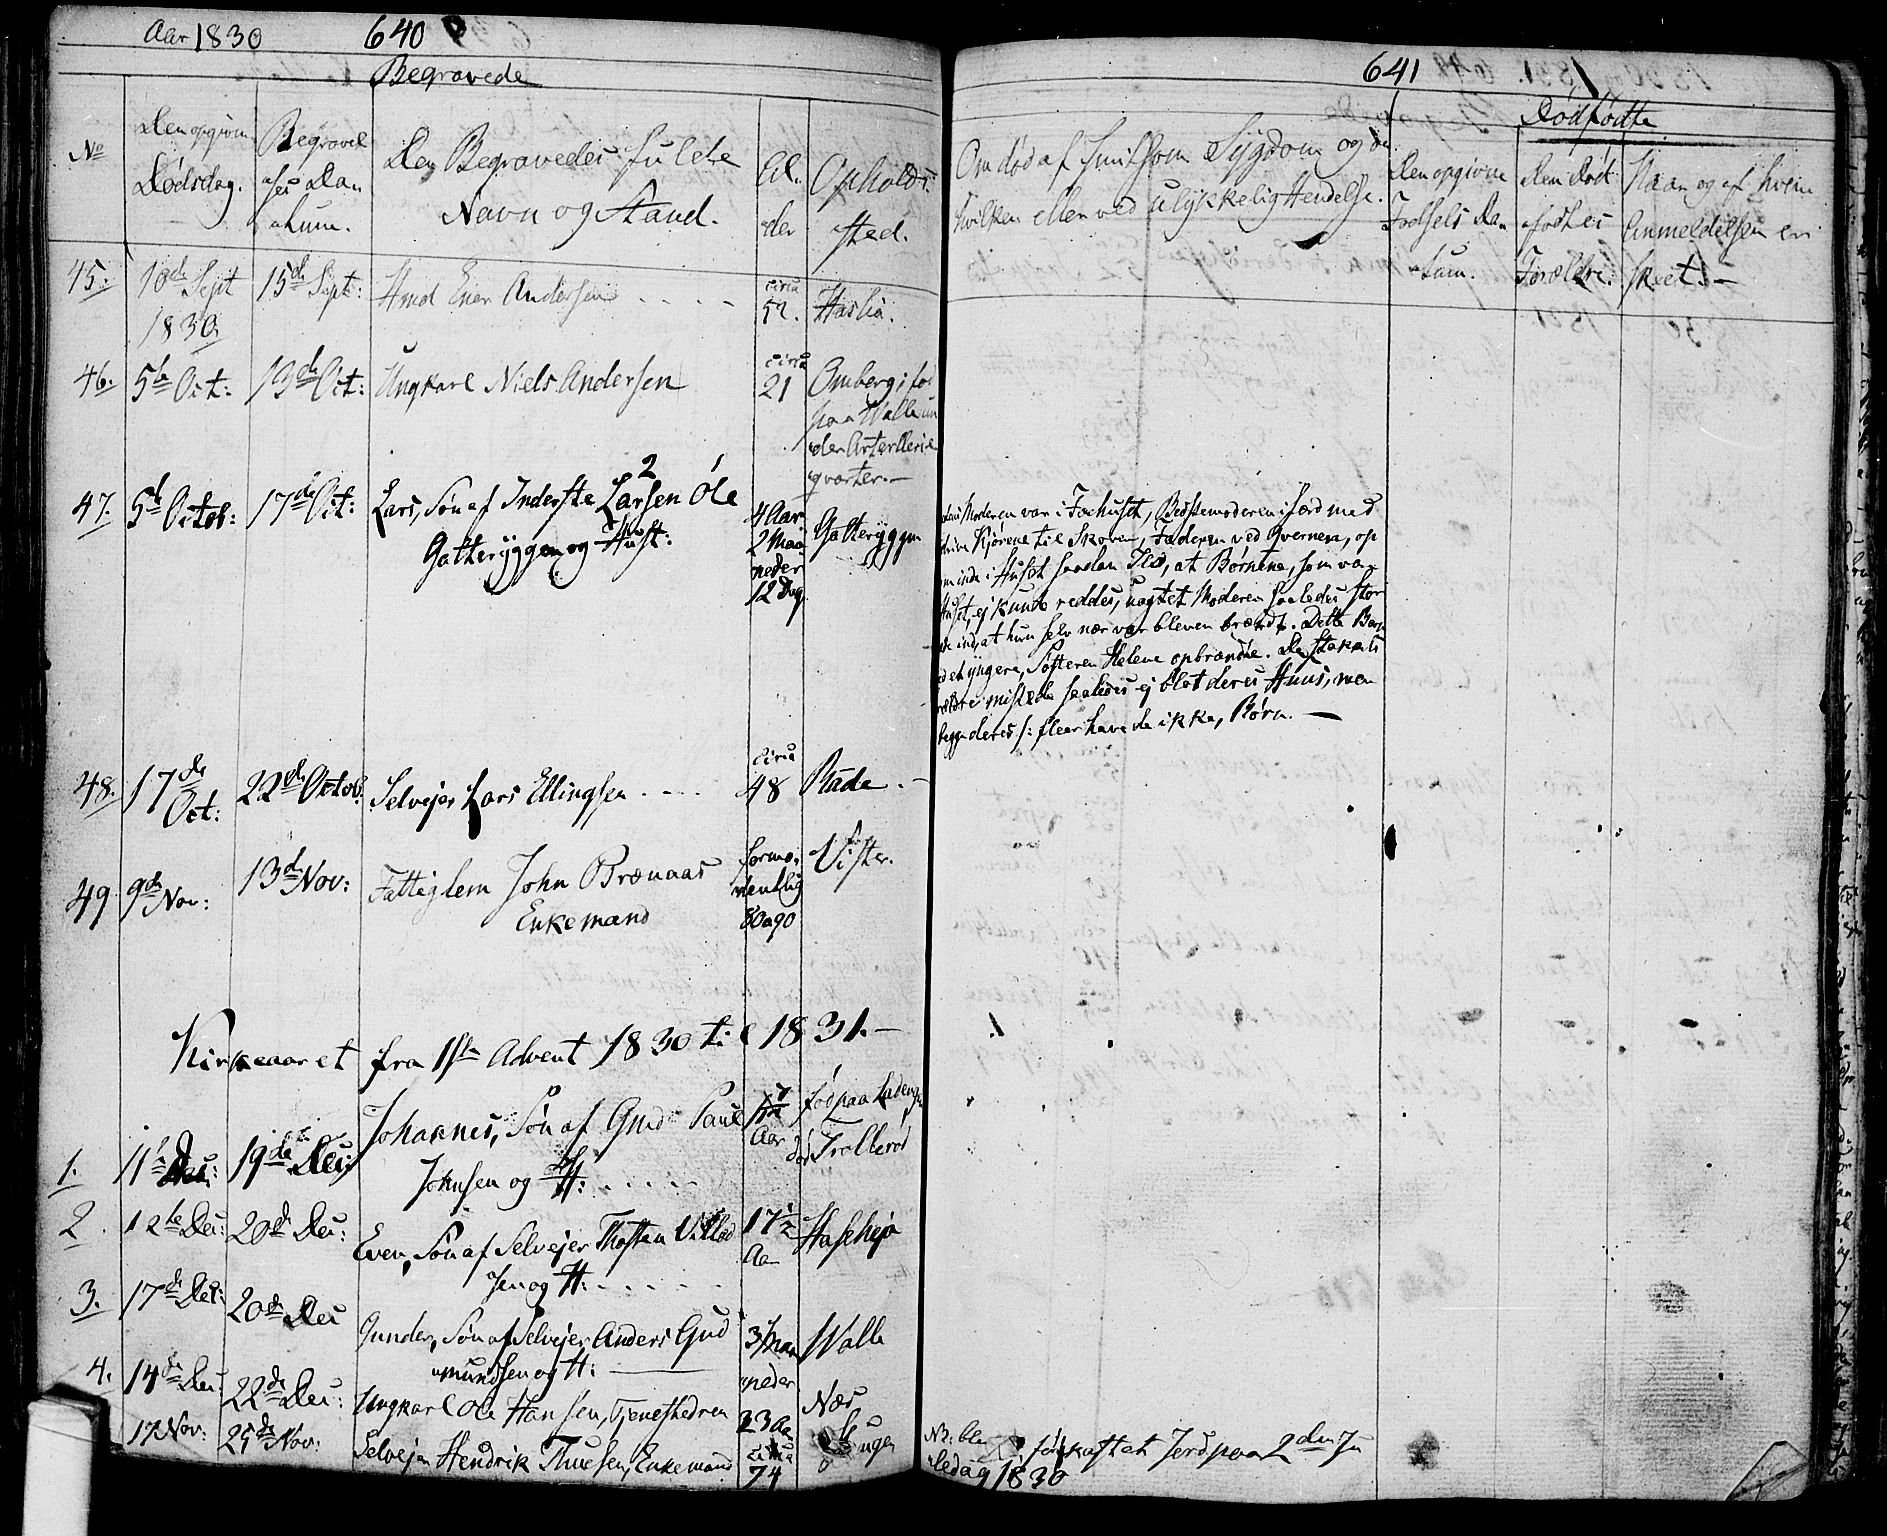 Aar 1830 640
Begravede
No
Den opgivne
Dødsdag.
Begravel
ses Da
tum.
Den Begravedes fulde
Navn og Stand.
Al
der
Opholds
sted.
45. 10de Sept 15de Sept: Hmd Ener Andersen circa
1830 52. Haslia.
46. 5te Oct: 13de Oct: Ungkarl Niels Andersen circa
21 Omberg, fød
paa Walle un
der Arterderie
qvarter.
47. 5te Octob: 17de Oct: Lars, Søn af Inderste Larsen 2 Ole 1
Gatteryggen og Hust:
4 Aar
2 Maa
neder
12 Dag
Gatteryggen
48. 17de
Oct: 22de Octob. Selvejer Lars Ellingsen circa
48 Rade.
49. 9de Nov: 13de Nov: Fattiglem John Brænaas
Enkemand
formo
dentlig
80 a 90
Vister.
Kirkeaaret fra 1ste Advent 1830 til 1831.
1. 11te Dec: 19de Dec: Johannes, Søn af Gmd Paul
Johnsen og H:
Aar
fød paa Ladeng
død Trollerød
2. 12te Dec: 20de Dec: Even, Søn af Selvejer Thosten Villad
sen og H:
17½
Aar
3. 17de Dec: 20de Dec Gunder, Søn af Selvejer Anders Gud
mundsen og H:
3 Maa
neder
Walle
4. 14de Dec: 22de Dec: Ungkarl Ole Hansen, Tjenestedren 23 Aar
Næs
17 Nov: 25de Nov: Selvejer Hendrik Thuesen, Enkemand circa
74
641
Dødfødte
Om død af smitsom Sygdom og da
hvilken eller ved ulykkelig Hendelse.
Den opgivne
Fødsels Da
tum.
Den Død
fødtes
Forældre.
Naar og af hvem
Anmeldelsen er
skeet.
Moderen var i Foehuset, Bedstemoderen ifærd med
drive Kjørene til Skoven, Faderen ved Qvernen, op
inde i Huset saadan Ild, at Børnene, som var
Huset, ej kunde reddes, uagtet Moderen saaledes stor
ind, at hun selv nær var bleven brændt. Dette Barn
det yngere, Søsteren Helene opbrændte. De stakkels
ældre mistede saaledes ej blot deres Huus, men
begge deres /: fleer havde de ikke, Børn.
NB: blev
først kastet Jord paa 2den Ju
ledag 1830